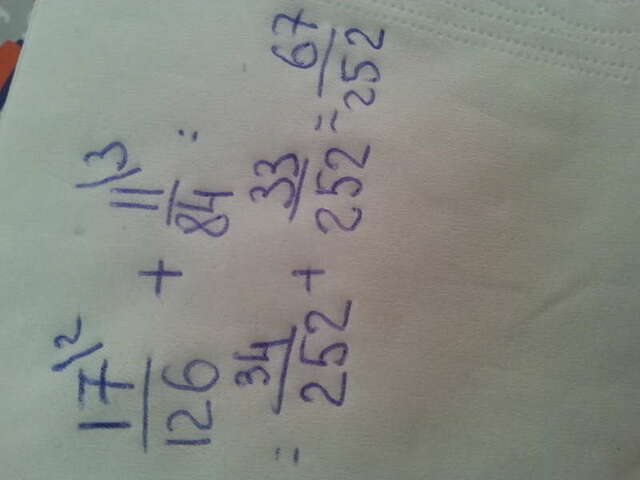 17\2/126 + 11\3/84 =
= 34/252 + 33/252 = 67/252